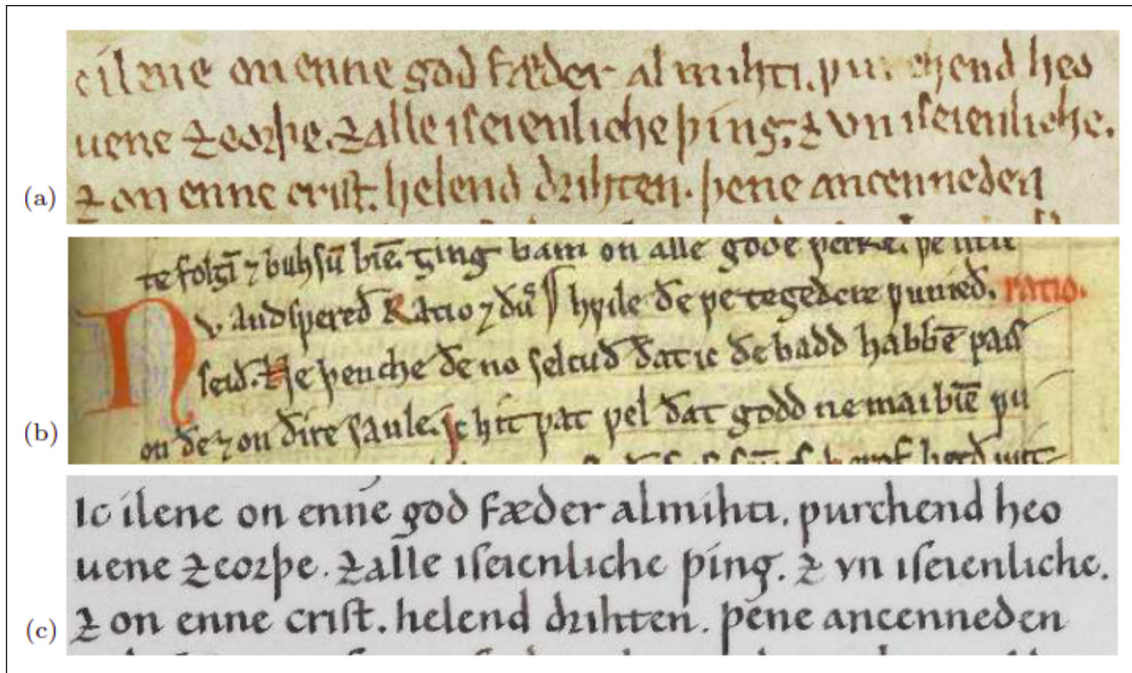 ilene on enne god fæder almihti. hend heo
uene ⁊ eorþe. ⁊ alle iſeienliche þing. ⁊ vn iſeienliche.
(a) ⁊ on enne criſt. helend drihten. þene ancenneden
te folgī ⁊ buhſū biē. bam on alle gode ƿerke.
Nv. Andſƿereð Ratio ⁊ hƿile ðe ƿe tegedere ƿunieð. ratio.
ſeið. Ne þenche ðe no ſelcuð ðat ic ðe badd habbē ƿaſ
(b) on ðe ⁊ on ðire ſaule. Ic hit ƿat ƿel ðat godd ne mai biē ƿu
Ic ilene on enne god fæder almihti. ƿurchend heo
uene ⁊ eorþe. ⁊ alle iſeienliche þing. ⁊ vn iſeienliche.
(c) ⁊ on enne criſt. helend drihten. þene ancenneden